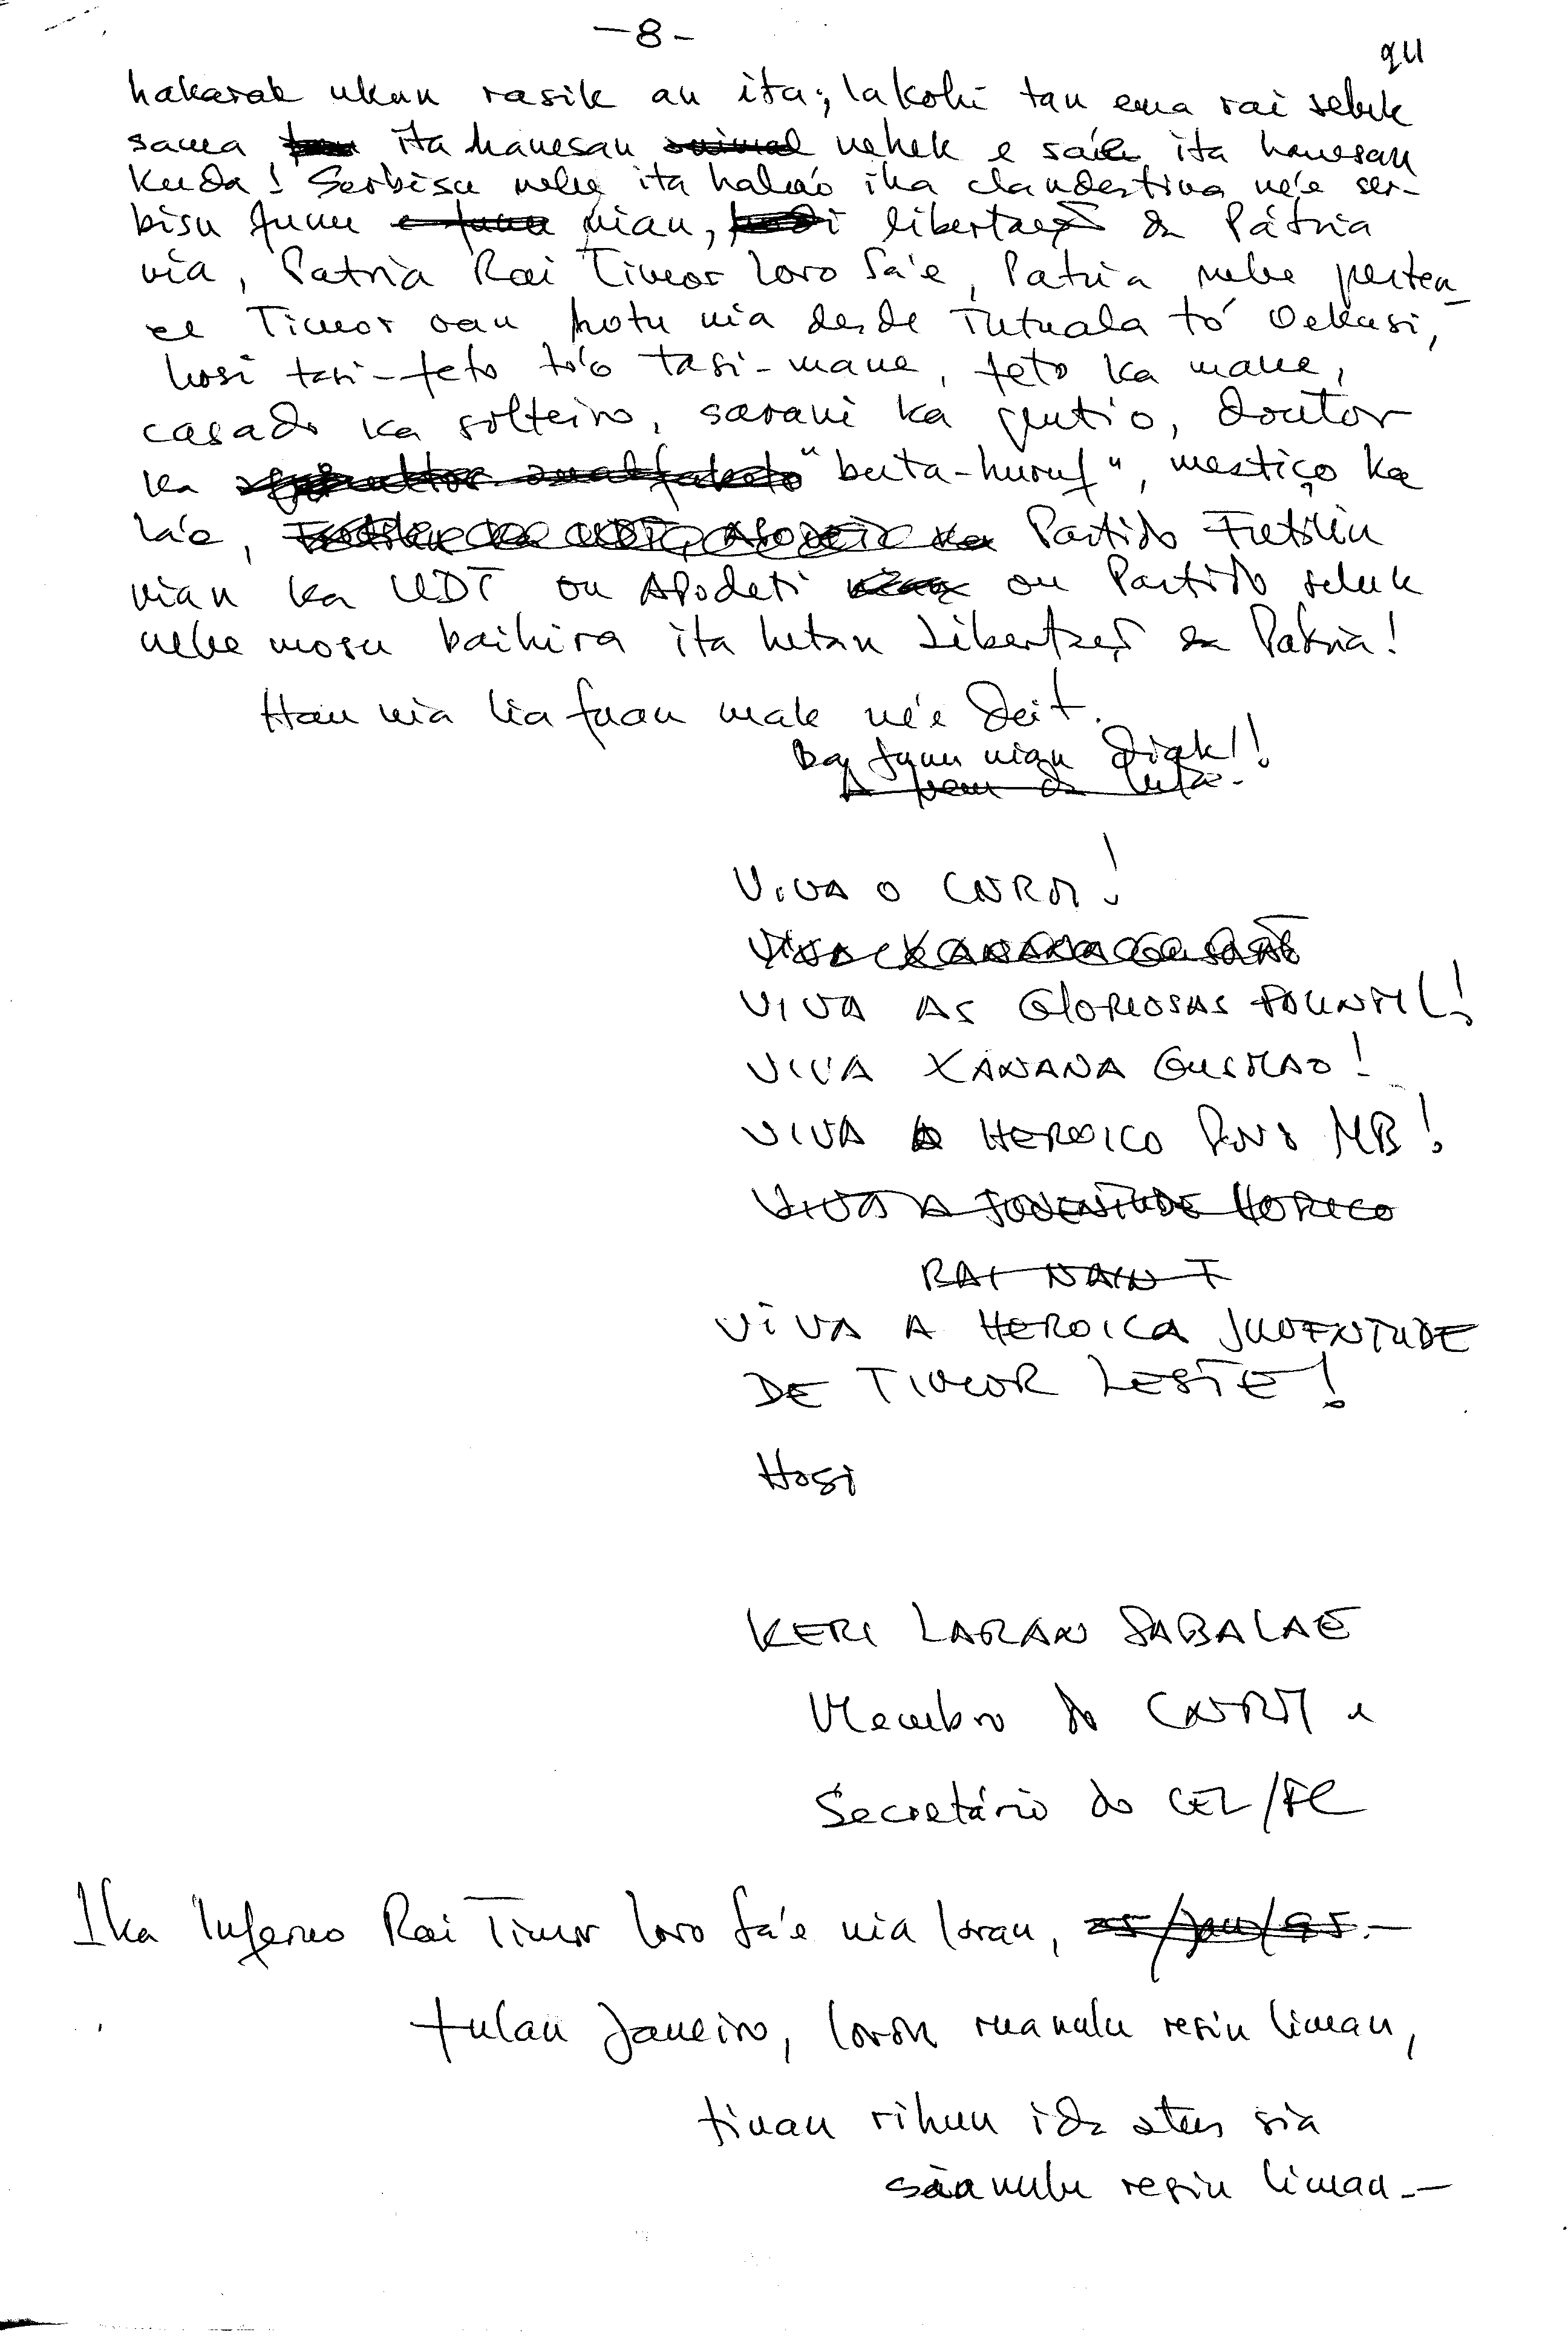 -8-
hakarak ukun rasik an ita; lakohi tan ema rai seluk
sama ita hanesan nehek e sa'e ita hanesan
kuda! Serbisu nebe ita hala'o iha clandestina ne'e ser-
bisu funu nian, libertação da Pátria
nia, Patria Rai Timor Loro Sa'e, Patria nebe perten-
ce Timor oan hotu nia desde Tutuala tó Oekusi,
hosi tasi-feto tó'o tasi-mane, feto ka mane,
casado ka solteiro, sarani ka gentio, doutor
ka "buta-huruf", mestiço ka
la'e, Partido Fretilin
nian ka UDT ou Apodeti ou Partido seluk
nebe mosu baihira ita hetan Libertação da Patria!
Hau nia lia fuan mak ne'e deit.
Ba funu nian diak!!
A bem da luta.-
VIVA O CNRM!
Viva Xanana Gusmão
VIVA AS GLORIOSAS FALINTIL!
VIVA XANANA GUSMAO!
VIVA O HEROICO POVO MB!
VIVA A JUVENTUDE HOROICO
RAI NAIN T
VIVA A HEROICA JUVENTUDE
DE TIMOR LESTE!
Hosi
KERI LARAN SABALAE
Membro do CNRM e
Secretário do CEL/FC
Iha Inferno Rai Timor Loro Sa'e nia laran, 25/Jan/95.-
fulan Janeiro, loron ruanulu resin liman,
tinan rihun ida atus sia
sianulu resin liman.-